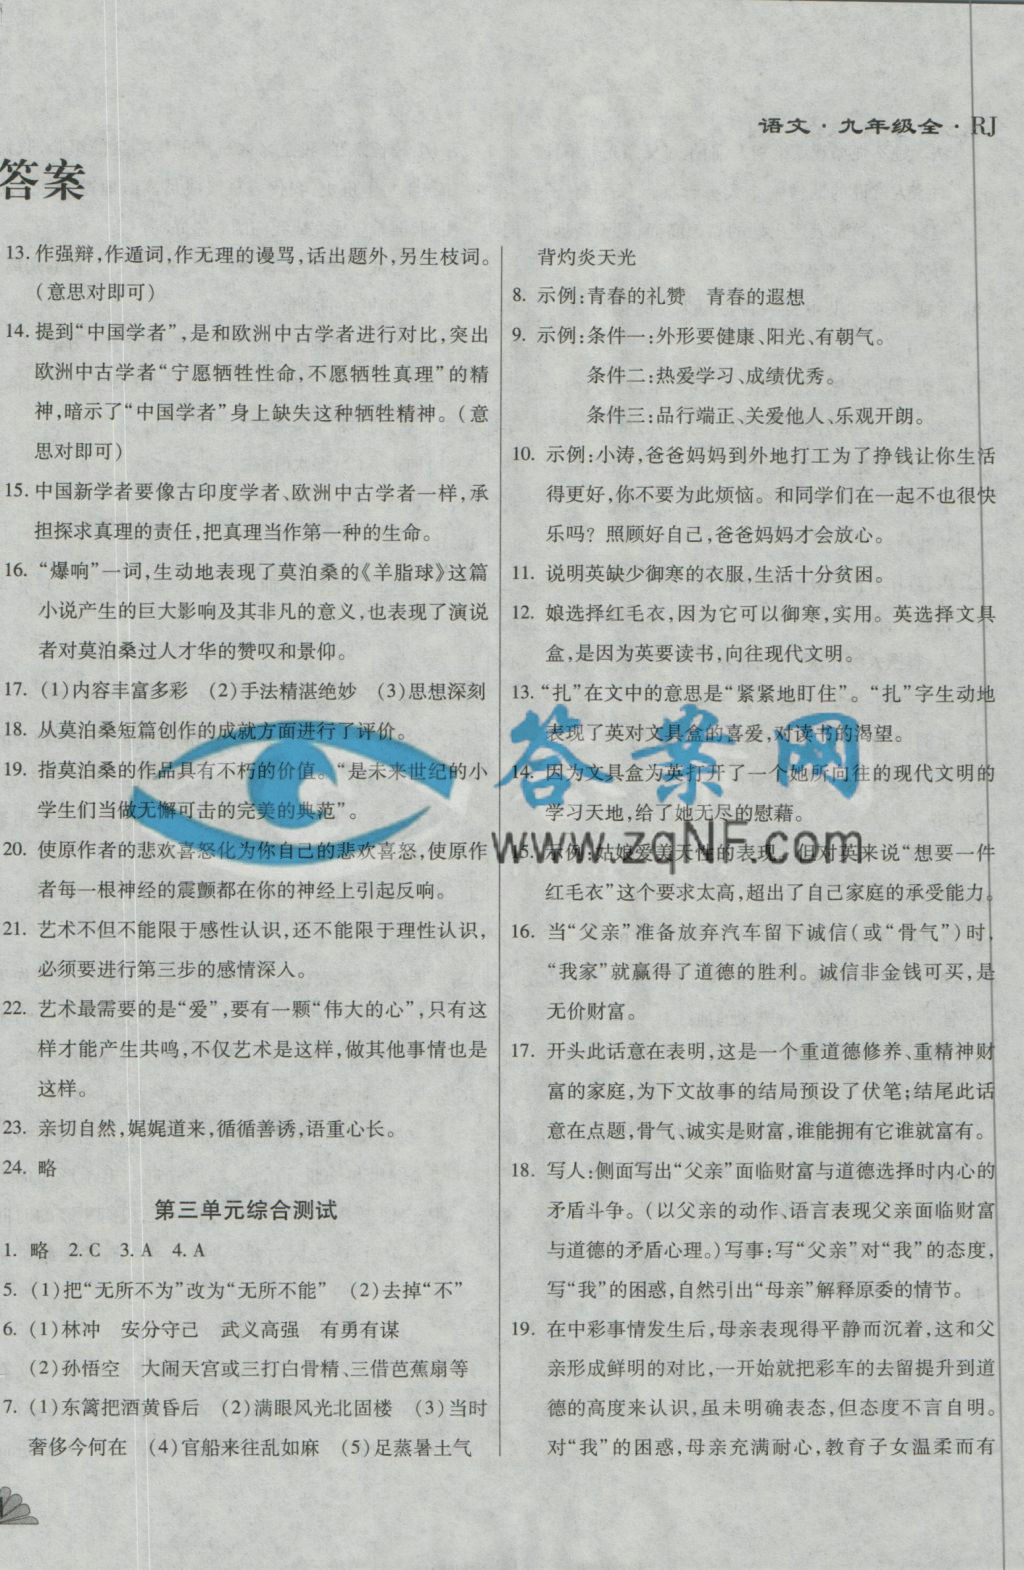 语文·九年级全·RJ
答案
13. 作强辩,作遁词,作无理的谩骂,话出题外,另生枝词。
(意思对即可)
14. 提到“中国学者”,是和欧洲中古学者进行对比,突出
欧洲中古学者“宁愿牺牲性命,不愿牺牲真理”的精
神,暗示了“中国学者”身上缺失这种牺牲精神。(意
思对即可)
15. 中国新学者要像古印度学者、欧洲中古学者一样,承
担探求真理的责任,把真理当作第一种的生命。
16. “爆响”一词,生动地表现了莫泊桑的《羊脂球》这篇
小说产生的巨大影响及其非凡的意义,也表现了演说
者对莫泊桑过人才华的赞叹和景仰。
17. (1)内容丰富多彩 (2)手法精湛绝妙 (3)思想深刻
18. 从莫泊桑短篇创作的成就方面进行了评价。
19. 指莫泊桑的作品具有不朽的价值。“是未来世纪的小
学生们当做无懈可击的完美的典范”。
20. 使原作者的悲欢喜怒化为你自己的悲欢喜怒,使原作
者每一根神经的震颤都在你的神经上引起反响。
21. 艺术不但不能限于感性认识,还不能限于理性认识,
必须要进行第三步的感情深入。
22. 艺术最需要的是“爱”,要有一颗“伟大的心”,只有这
样才能产生共鸣,不仅艺术是这样,做其他事情也是
这样。
23. 亲切自然,娓娓道来,循循善诱,语重心长。
24. 略
第三单元综合测试
1. 略 2. C 3. A 4. A
5. (1)把“无所不为”改为“无所不能” (2)去掉“不”
6. (1)林冲 安分守己 武义高强 有勇有谋
(2)孙悟空 大闹天宫或三打白骨精、三借芭蕉扇等
7. (1)东篱把酒黄昏后 (2)满眼风光北固楼 (3)当时
奢侈今何在 (4)官船来往乱如麻 (5)足蒸暑土气
背灼炎天光
8. 示例:青春的礼赞 青春的遐想
9. 示例:条件一:外形要健康、阳光、有朝气。
条件二:热爱学习、成绩优秀。
条件三:品行端正、关爱他人、乐观开朗。
10. 示例:小涛,爸爸妈妈到外地打工为了挣钱让你生活
得更好,你不要为此烦恼。和同学们在一起不也很快
乐吗? 照顾好自己,爸爸妈妈才会放心。
11. 说明英缺少御寒的衣服,生活十分贫困。
12. 娘选择红毛衣,因为它可以御寒,实用。英选择文具
盒,是因为英要读书,向往现代文明。
13. “扎”在文中的意思是“紧紧地盯住”。“扎”字生动地
表现了英对文具盒的喜爱,对读书的渴望。
14. 因为文具盒为英打开了一个她所向往的现代文明的
学习天地,给了她无尽的慰藉。
15. 示例:姑娘爱美天性的表现。但对英来说“想要一件
红毛衣”这个要求太高,超出了自己家庭的承受能力。
16. 当“父亲”准备放弃汽车留下诚信(或“骨气”)时,
“我家”就赢得了道德的胜利。诚信非金钱可买,是
无价财富。
17. 开头此话意在表明,这是一个重道德修养、重精神财
富的家庭,为下文故事的结局预设了伏笔;结尾此话
意在点题,骨气、诚实是财富,谁能拥有它谁就富有。
18. 写人:侧面写出“父亲”面临财富与道德选择时内心的
矛盾斗争。(以父亲的动作、语言表现父亲面临财富
与道德的矛盾心理。)写事:写“父亲”对“我”的态度,
写“我”的困惑,自然引出“母亲”解释原委的情节。
19. 在中彩事情发生后,母亲表现得平静而沉着,这和父
亲形成鲜明的对比,一开始就把彩车的去留提升到道
德的高度来认识,虽未明确表态,但态度不言自明。
对“我”的困惑,母亲充满耐心,教育子女温柔而有
答案网
www.zqNF.com